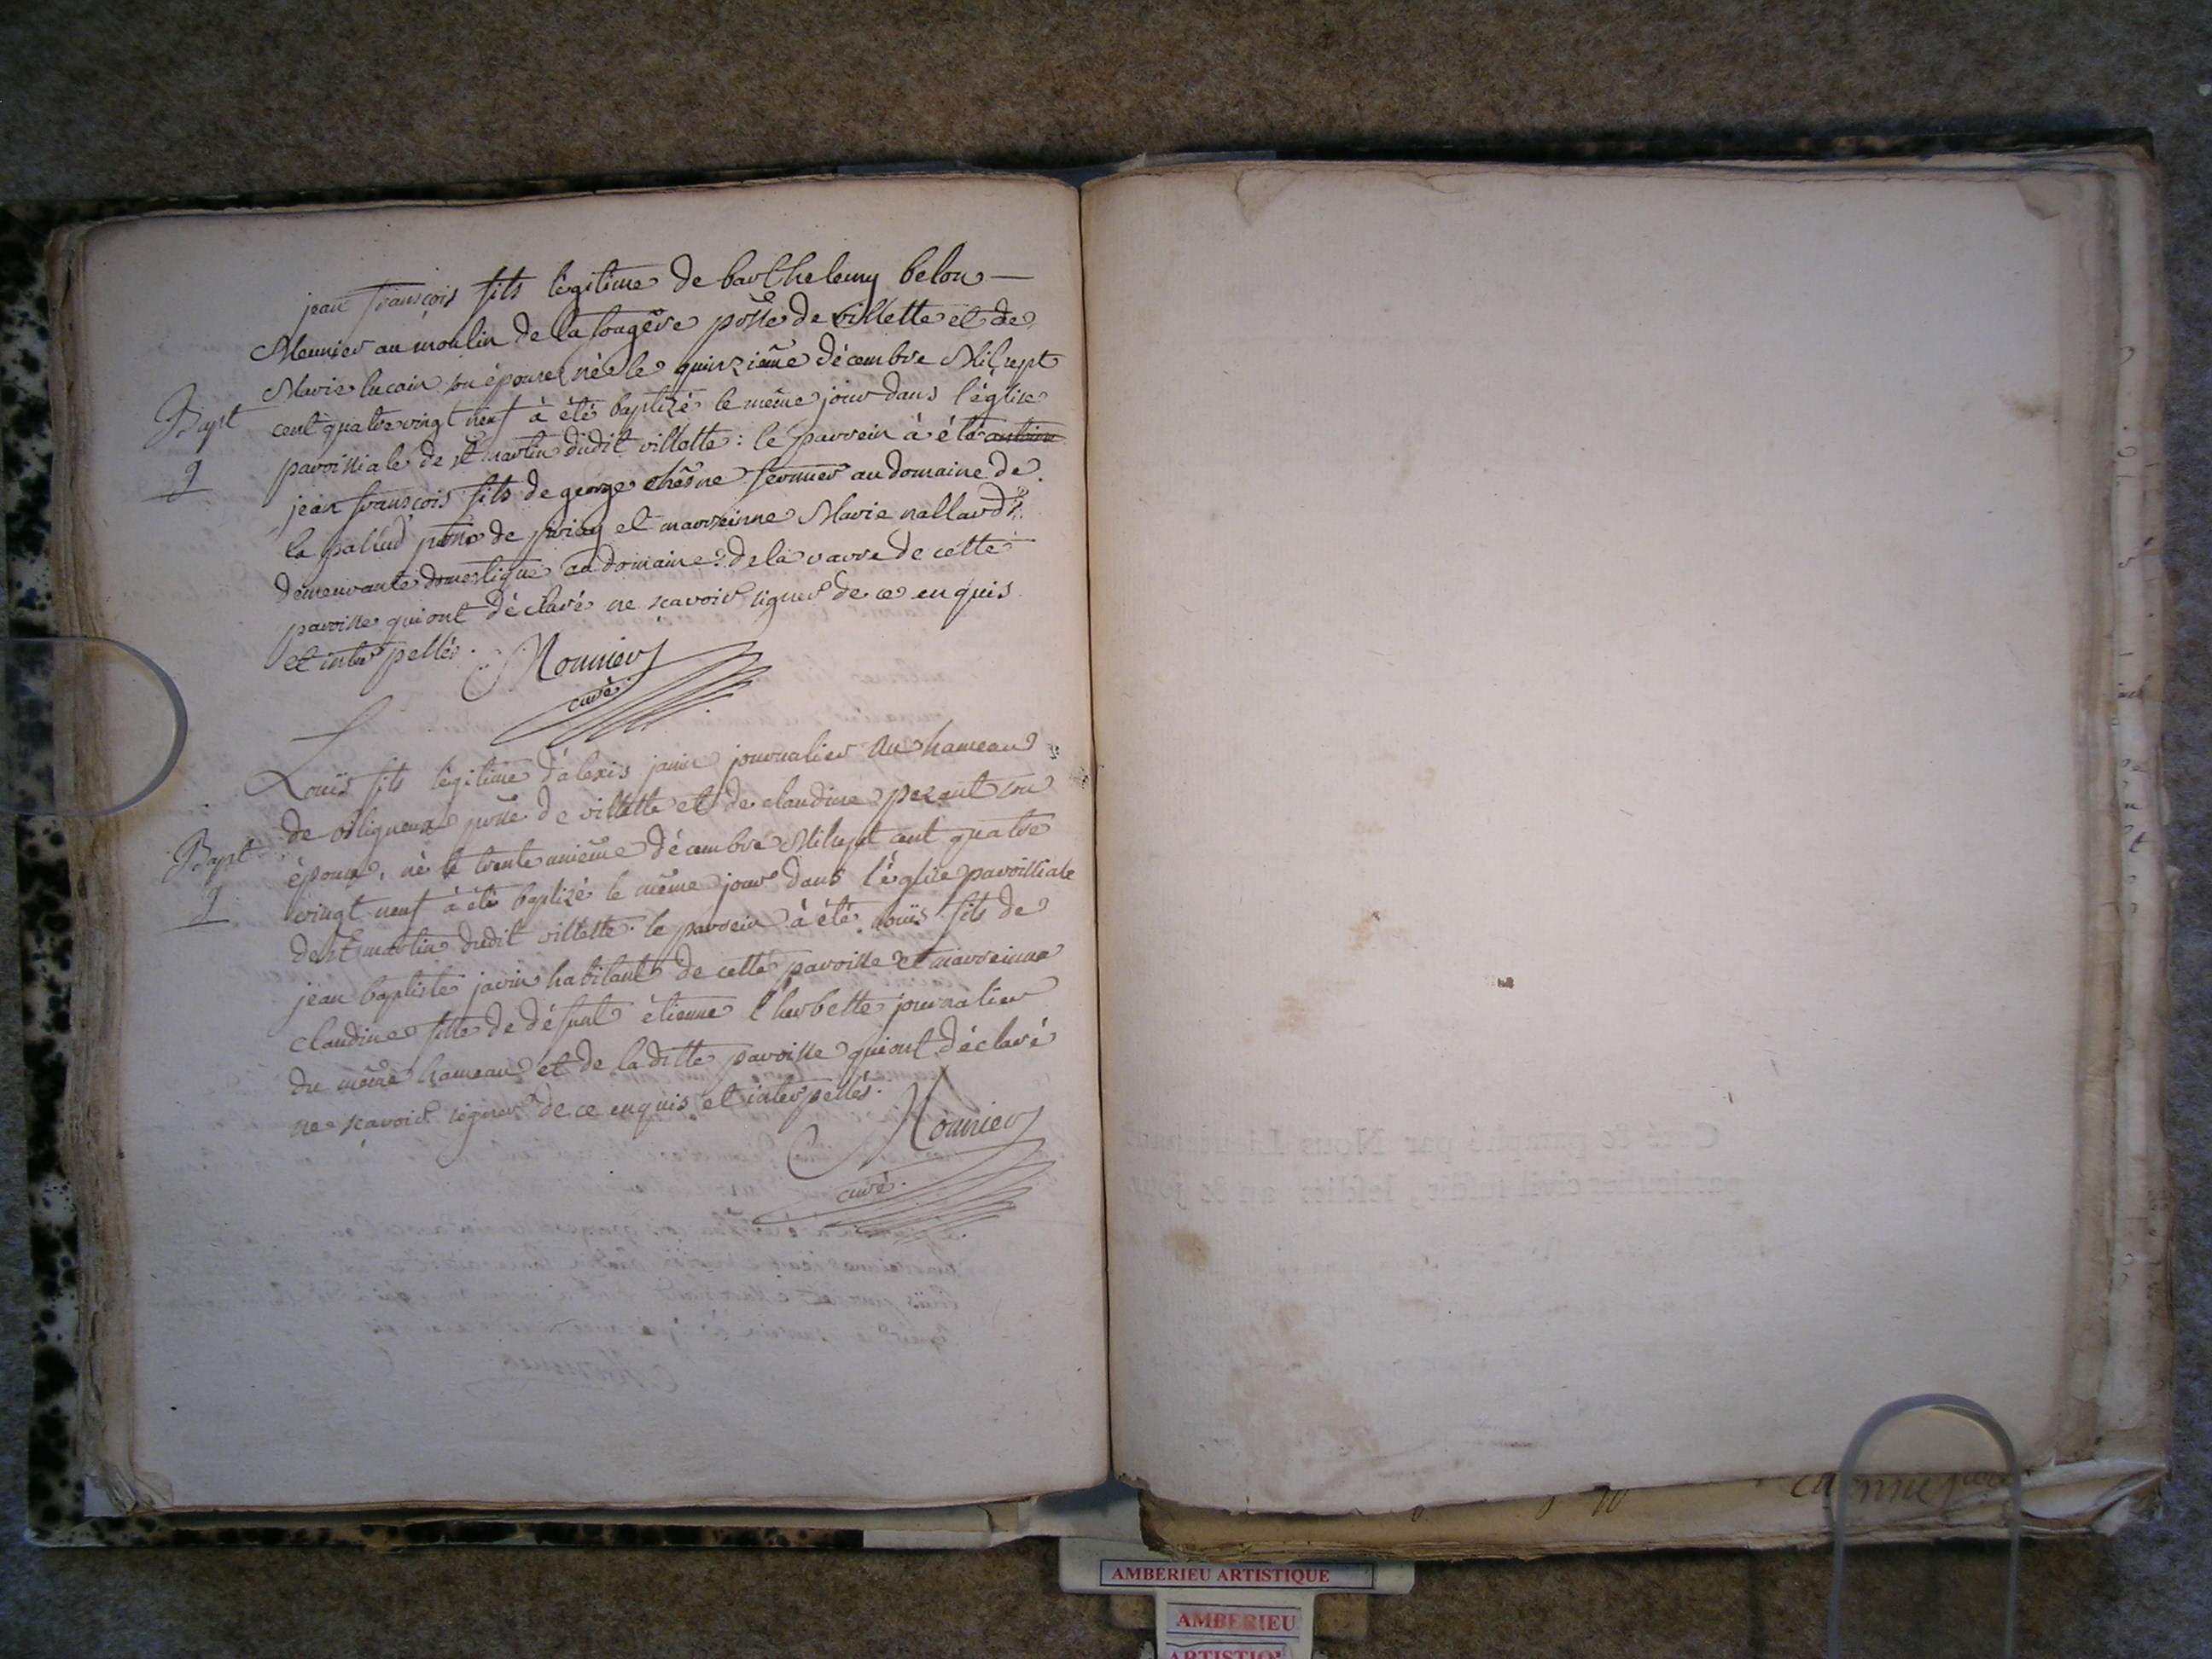 jean françois fils légitime de barthelemy belon —
Meunier au moulin de la fougère psse de villette et de
Marie lucain son épouse né le quinzième décembre Mil sept
Bapt
cent quatre vingt neuf à été baptizé le même jour dans l'église
paroissiale de st martin dudit villette : le parrein à été antoine
jean françois fils de george chêne fermier au domaine de
la palud psse de priay et marreinne Marie nallard
demeurante domestique au domaine de la varre de cette
paroisse qui ont déclaré ne scavoir signer de ce enquis
et interpellés.
Monnier
curé
Louïs fils légitime d'alexis janin journalier au hameau
de psse de villette et de claudine pezant son
Bapt
épouse, né le trente unième décembre Mil sept cent quatre
vingt neuf à été baptizé le même jour dans l'église paroissiale
de st martin dudit villette. le parrein à été louïs fils de
jean baptiste janin habitant de cette paroisse et marreinne
claudine fille de défunt étienne l'herbette journalier
du même hameau et de laditte paroisse qui ont déclaré
ne scavoir signer de ce enquis et interpellés.
Monnier
curé.
AMBERIEU ARTISTIQUE
AMBERIEU
ARTISTIQUE